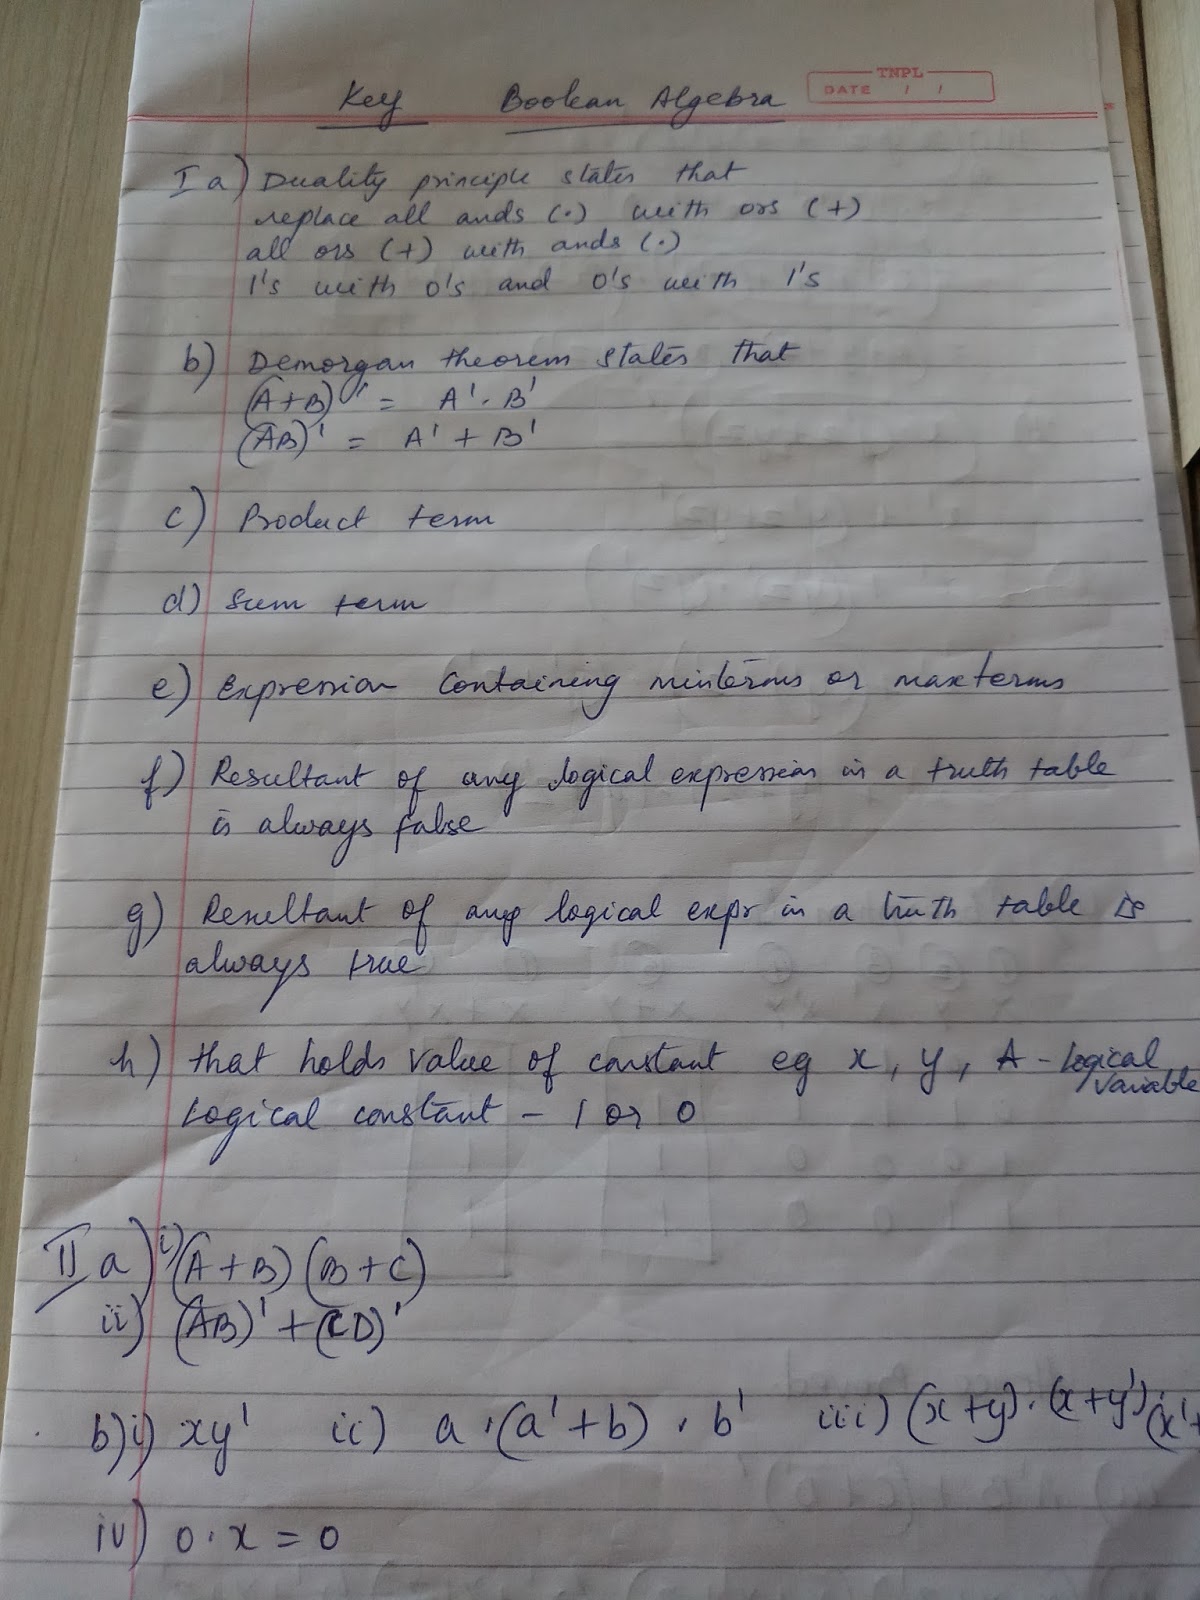 Key Boolean Algebra
TNPL
DATE / /
I a) Duality principle states that
replace all ands (.) with ors (+)
all ors (+) with ands (.)
1's with 0's and 0's with 1's
b) Demorgan theorem states that
(A+B)' = A'. B'
(AB)' = A' + B'
c) Product term
d) Sum term
e) Expression containing minterms or maxterms
f) Resultant of any logical expression in a truth table
is always false
g) Resultant of any logical expr in a truth table is
always true
h) that holds value of constant eg x, y, A - Logical
variable
Logical constant - 1 or 0
II a) i) (A+B) (B+C)
ii) (AB)' + (CD)'
b) i) xy' ii) a.(a'+b).b' iii) (x+y).(x+y').(x'+
iv) 0.x = 0